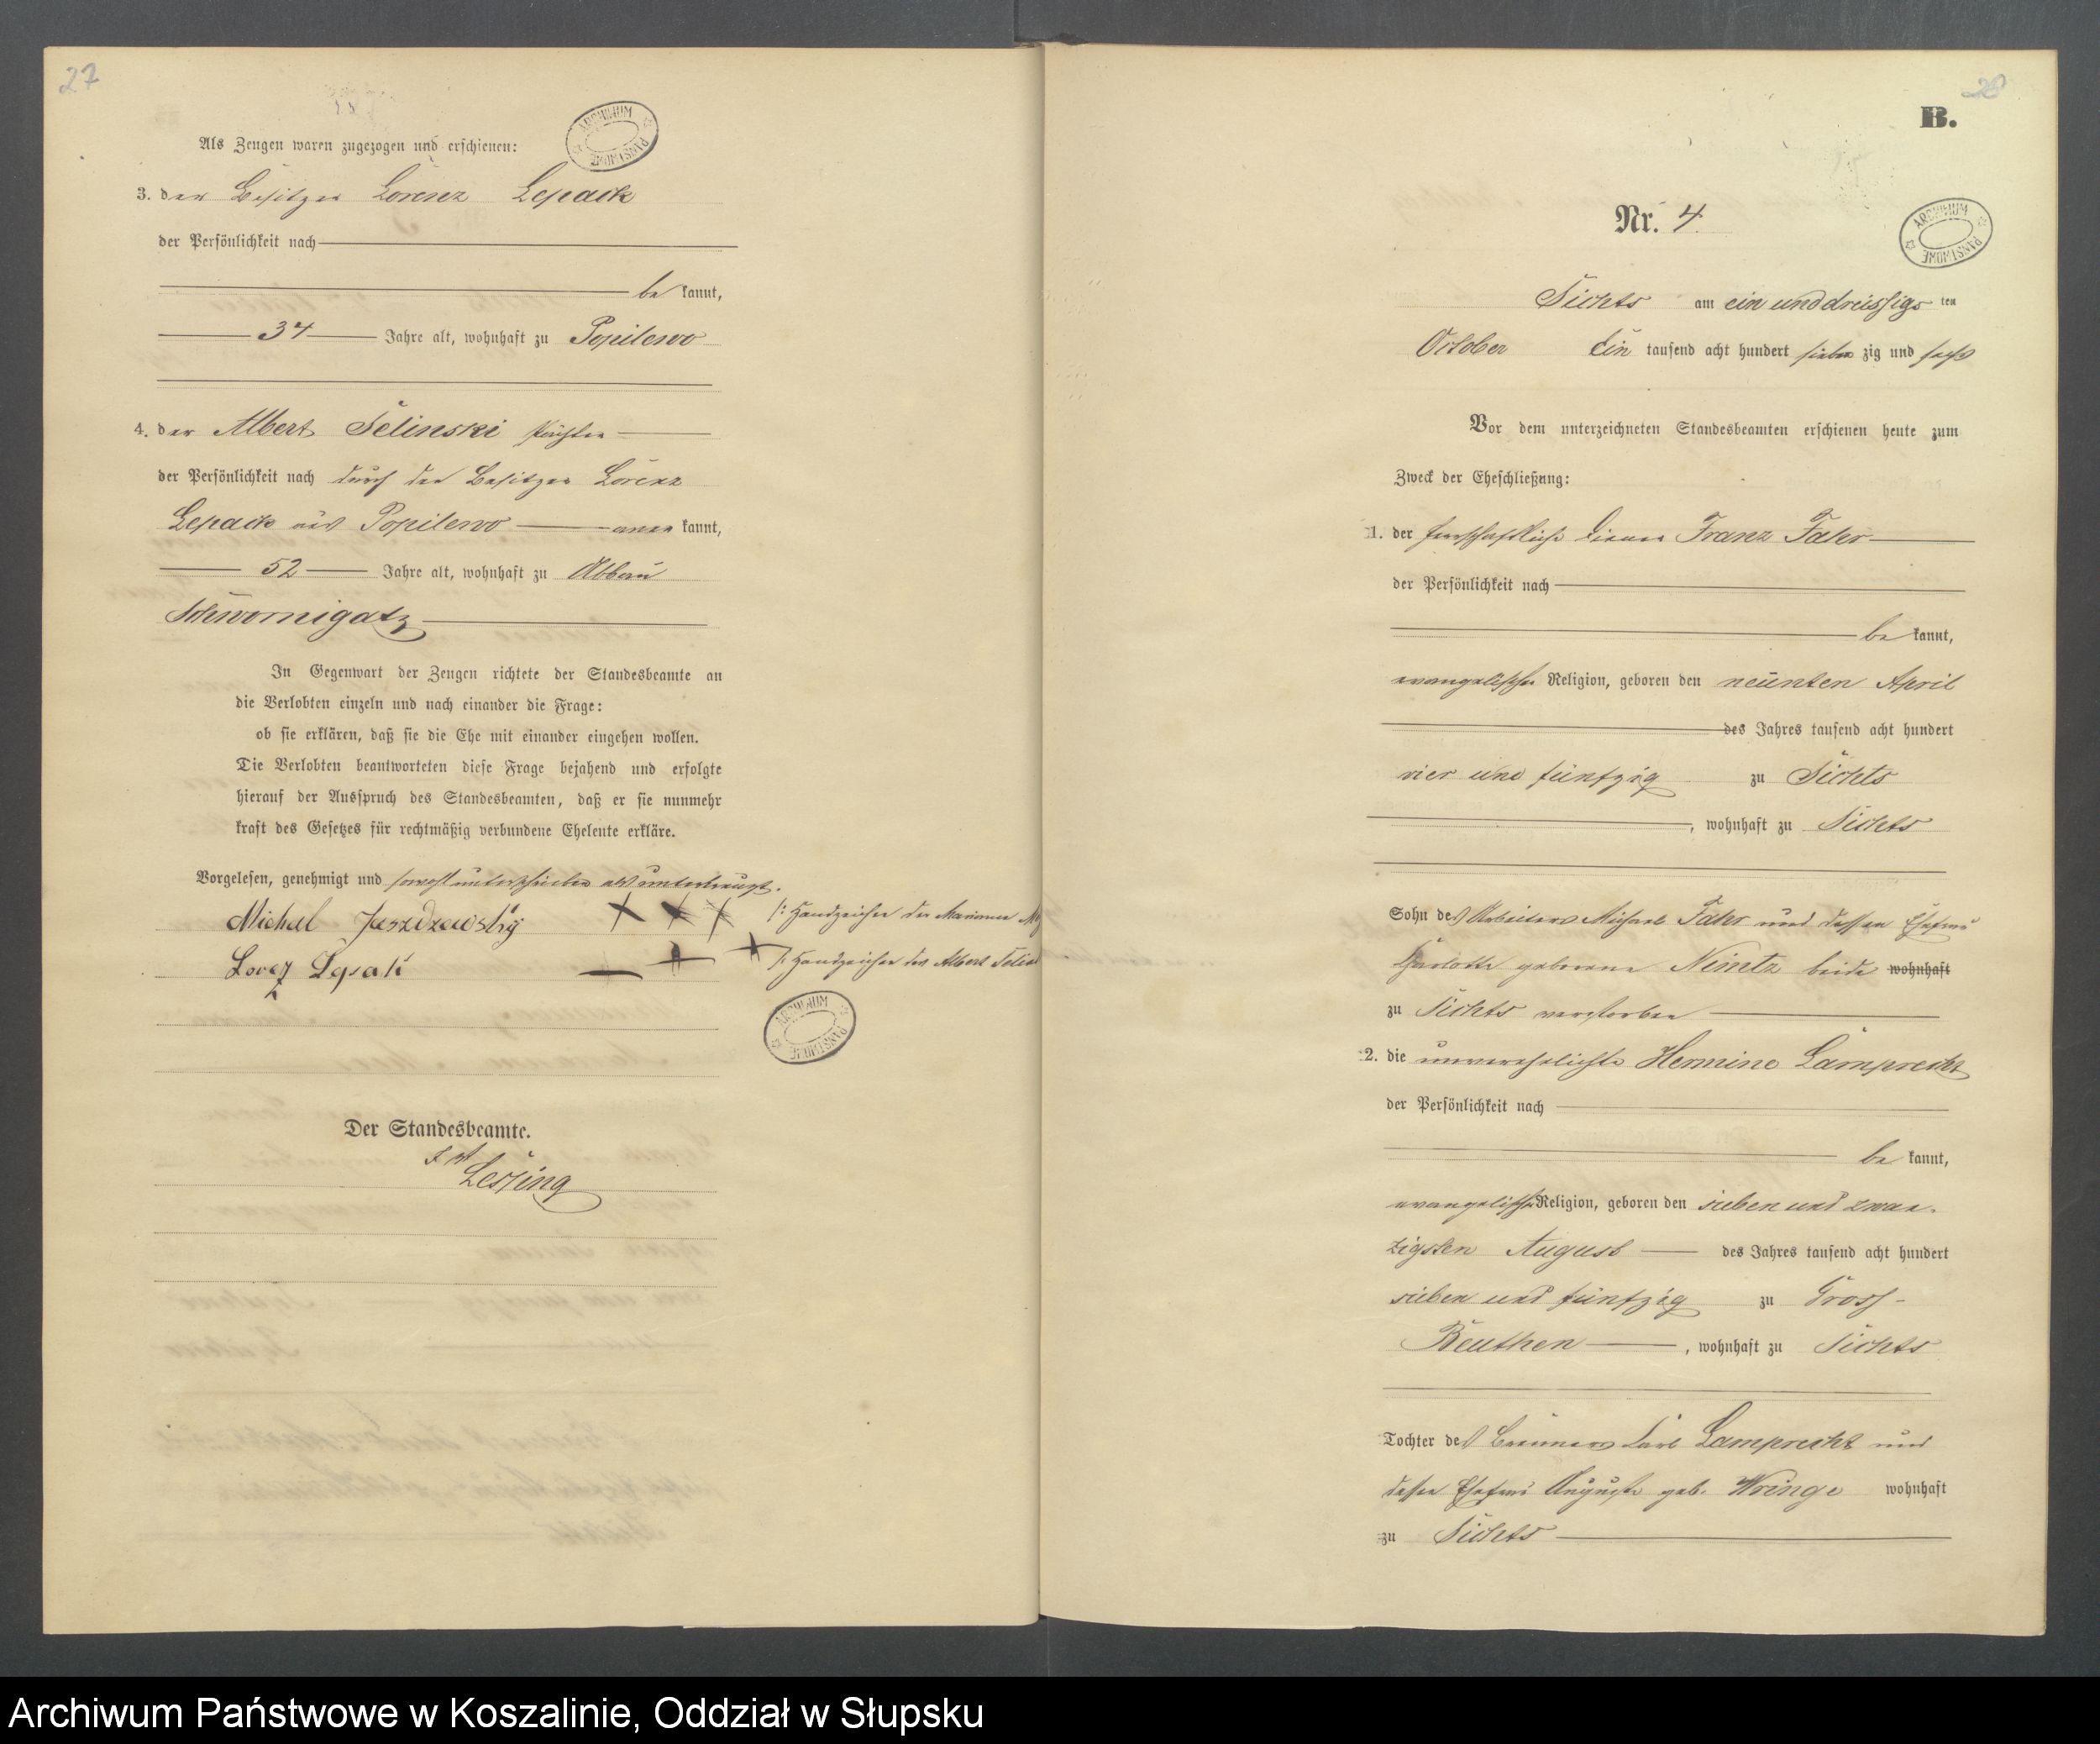 27
Als Zeugen waren zugezogen und erschienen:
ARCHIWUM PAŃSTWOWE
3. der Besitzer Lorenz Lepack
der Persönlichkeit nach
be kannt,
34 Jahre alt, wohnhaft zu Popilewo
4. der Albert Selinski Pächter
der Persönlichkeit nach durch den Besitzer Lorenz
Lepack aus Popilewo aner kannt,
52 Jahre alt, wohnhaft zu Abbau
Schwornigatz
In Gegenwart der Zeugen richtete der Standesbeamte an
die Verlobten einzeln und nach einander die Frage:
ob sie erklären, daß sie die Ehe mit einander eingehen wollen.
Die Verlobten beantworteten diese Frage bejahend und erfolgte
hierauf der Ausspruch des Standesbeamten, daß er sie nunmehr
kraft des Gesetzes für rechtmäßig verbundene Eheleute erkläre.
Vorgelesen, genehmigt und sowohl unterschrieben als unterkreuzt.
Michal Jaszdzewsky + + + /: Handzeichen der Marianne
Lorez Lepak + + /: Handzeichen des Albert Selins
ARCHIWUM PAŃSTWOWE
Der Standesbeamte.
Lessing
28
B.
Nr. 4.
ARCHIWUM PAŃSTWOWE
Sichts am ein und dreissigs ten
October Ein tausend acht hundert sieben zig und sechs
Vor dem unterzeichneten Standesbeamten erschienen heute zum
Zweck der Eheschließung:
1. der herrschaftliche Diener Franz Fahr
der Persönlichkeit nach
be kannt,
evangelischer Religion, geboren den neunten April
des Jahres tausend acht hundert
vier und fünfzig zu Sichts
, wohnhaft zu Sichts
Sohn des Arbeiters Michael Fahr und dessen Ehefrau
Charlotte geborene Nimtz beide wohnhaft
zu Sichts verstorben
2. die unverehelichte Hermine Lamprecht
der Persönlichkeit nach
be kannt,
evangelischer Religion, geboren den sieben und zwan-
zigsten August des Jahres tausend acht hundert
sieben und fünfzig zu Gross-
Beuthen , wohnhaft zu Sichts
Tochter des Brenners Carl Lamprecht und
dessen Ehefrau Auguste geb. Wringe wohnhaft
zu Sichts
Archiwum Państwowe w Koszalinie, Oddział w Słupsku